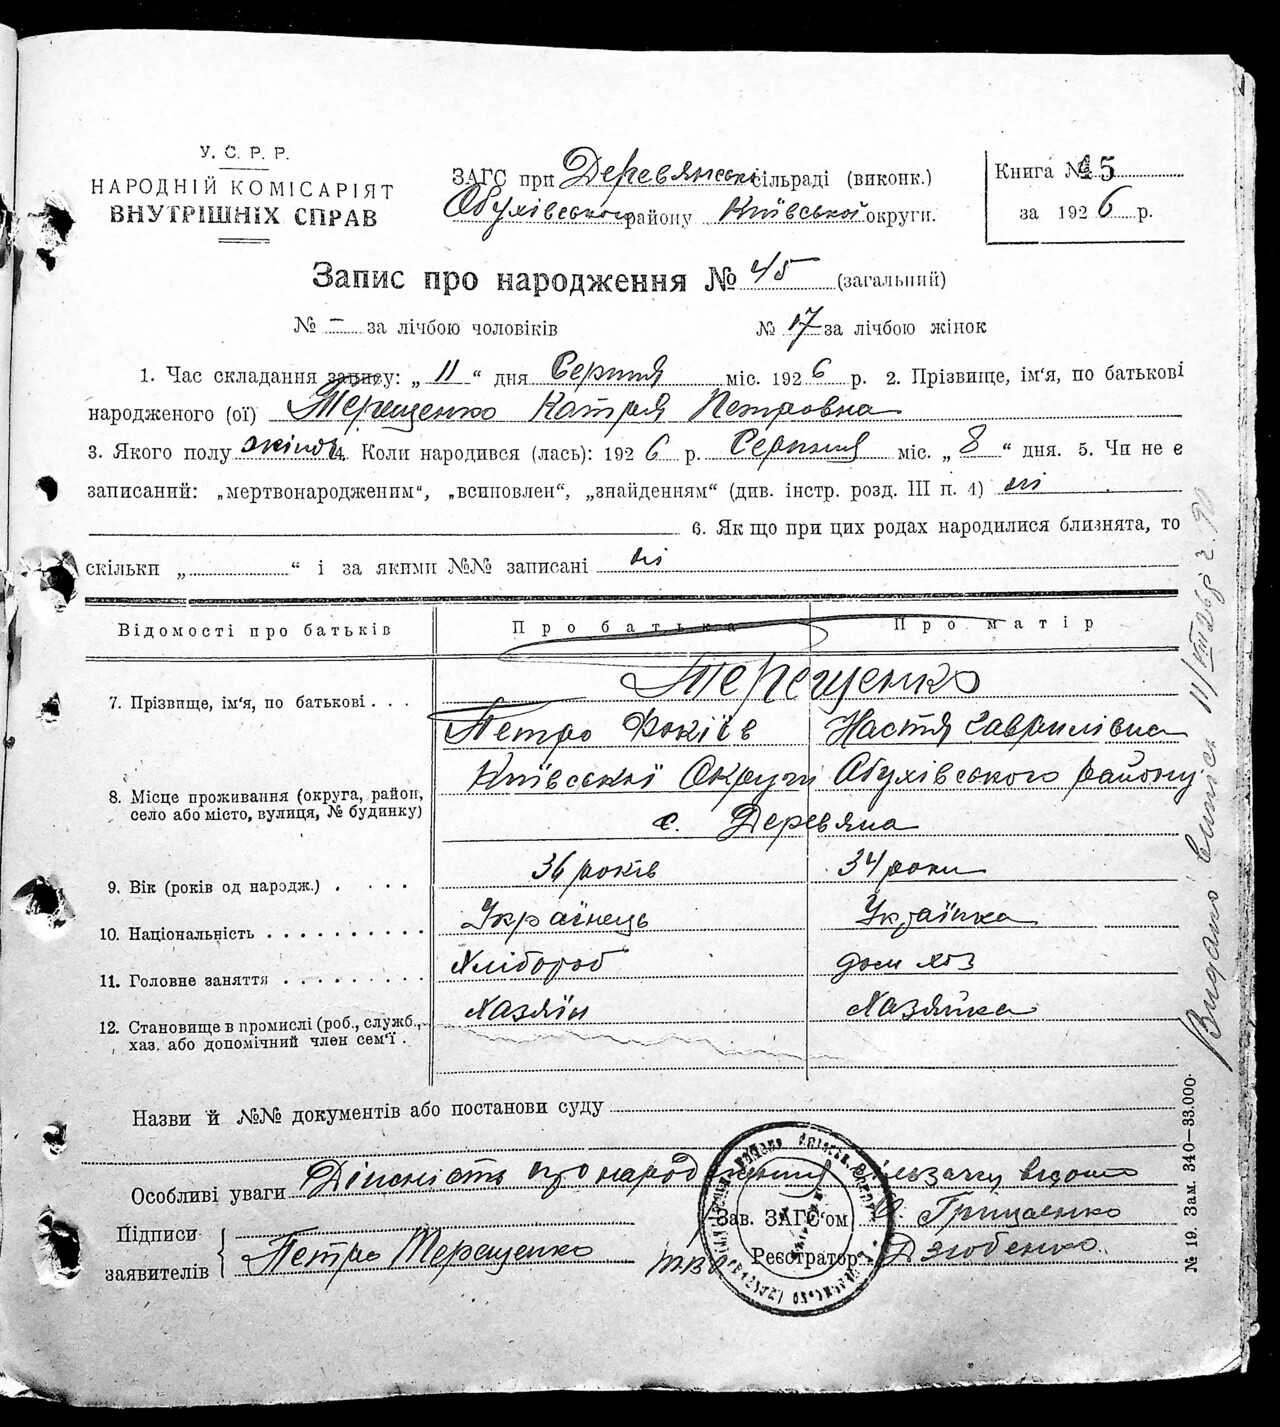 У. С. Р. Р.
НАРОДНІЙ КОМІСАРІЯТ
ВНУТРІШНІХ СПРАВ
ЗАГС при Деревянські сільраді (виконк.)
Обухівського району Київської округи.
Книга № 15
за 1926 р.
Запис про народження № 45 (загальний)
№ – за лічбою чоловіків № 17 за лічбою жінок
1. Час складання запису: „ 11 “ дня Серпня міс. 1926 р. 2. Прізвище, ім'я, по батькові
народженого (ої) Терещенко Катря Петровна
3. Якого полу жіноч 4. Коли народився (лась): 1926 р. Серпня міс. „ 8 “ дня. 5. Чи не є
записаний: „мертвонародженим“, „всиновлен“, „знайденням“ (див. інстр. розд. III п. 4) ні
6. Як що при цих родах народилися близнята, то
скільки „ “ і за якими №№ записані ні
Відомості про батьків Про батька Про матір
Терещенко
7. Прізвище, ім'я, по батькові . . .
Петро Фокіїв Настя Гаврилівна
Київської Округи Обухівського району
8. Місце проживання (округа, район,
село або місто, вулиця, № будинку)
с. Деревяна
9. Вік (років од народж.) . . . . 36 років 34 роки
10. Національність . . . . . . . . . . Українець Українка
11. Головне заняття . . . . . . . . Хлібороб дом хоз
12. Становище в промислі (роб., служб., Хазяїн Хазяйка
хаз. або допомічний член сем'ї .
Назви й №№ документів або постанови суду
Особливі уваги Дійсність про народження
Підписи
заявителів Петро Терещенко
Зав. ЗАГС'ом Грищенко
Реєстратор Дзюбенко
№ 19. Зам. 340—33.000.
Видано Випись 11/VIII 26 р